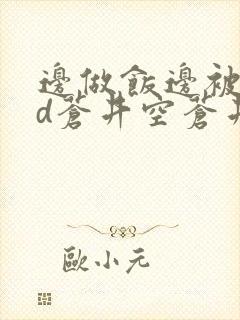 邊做飯邊被
d蒼井空蒼井
歐小元